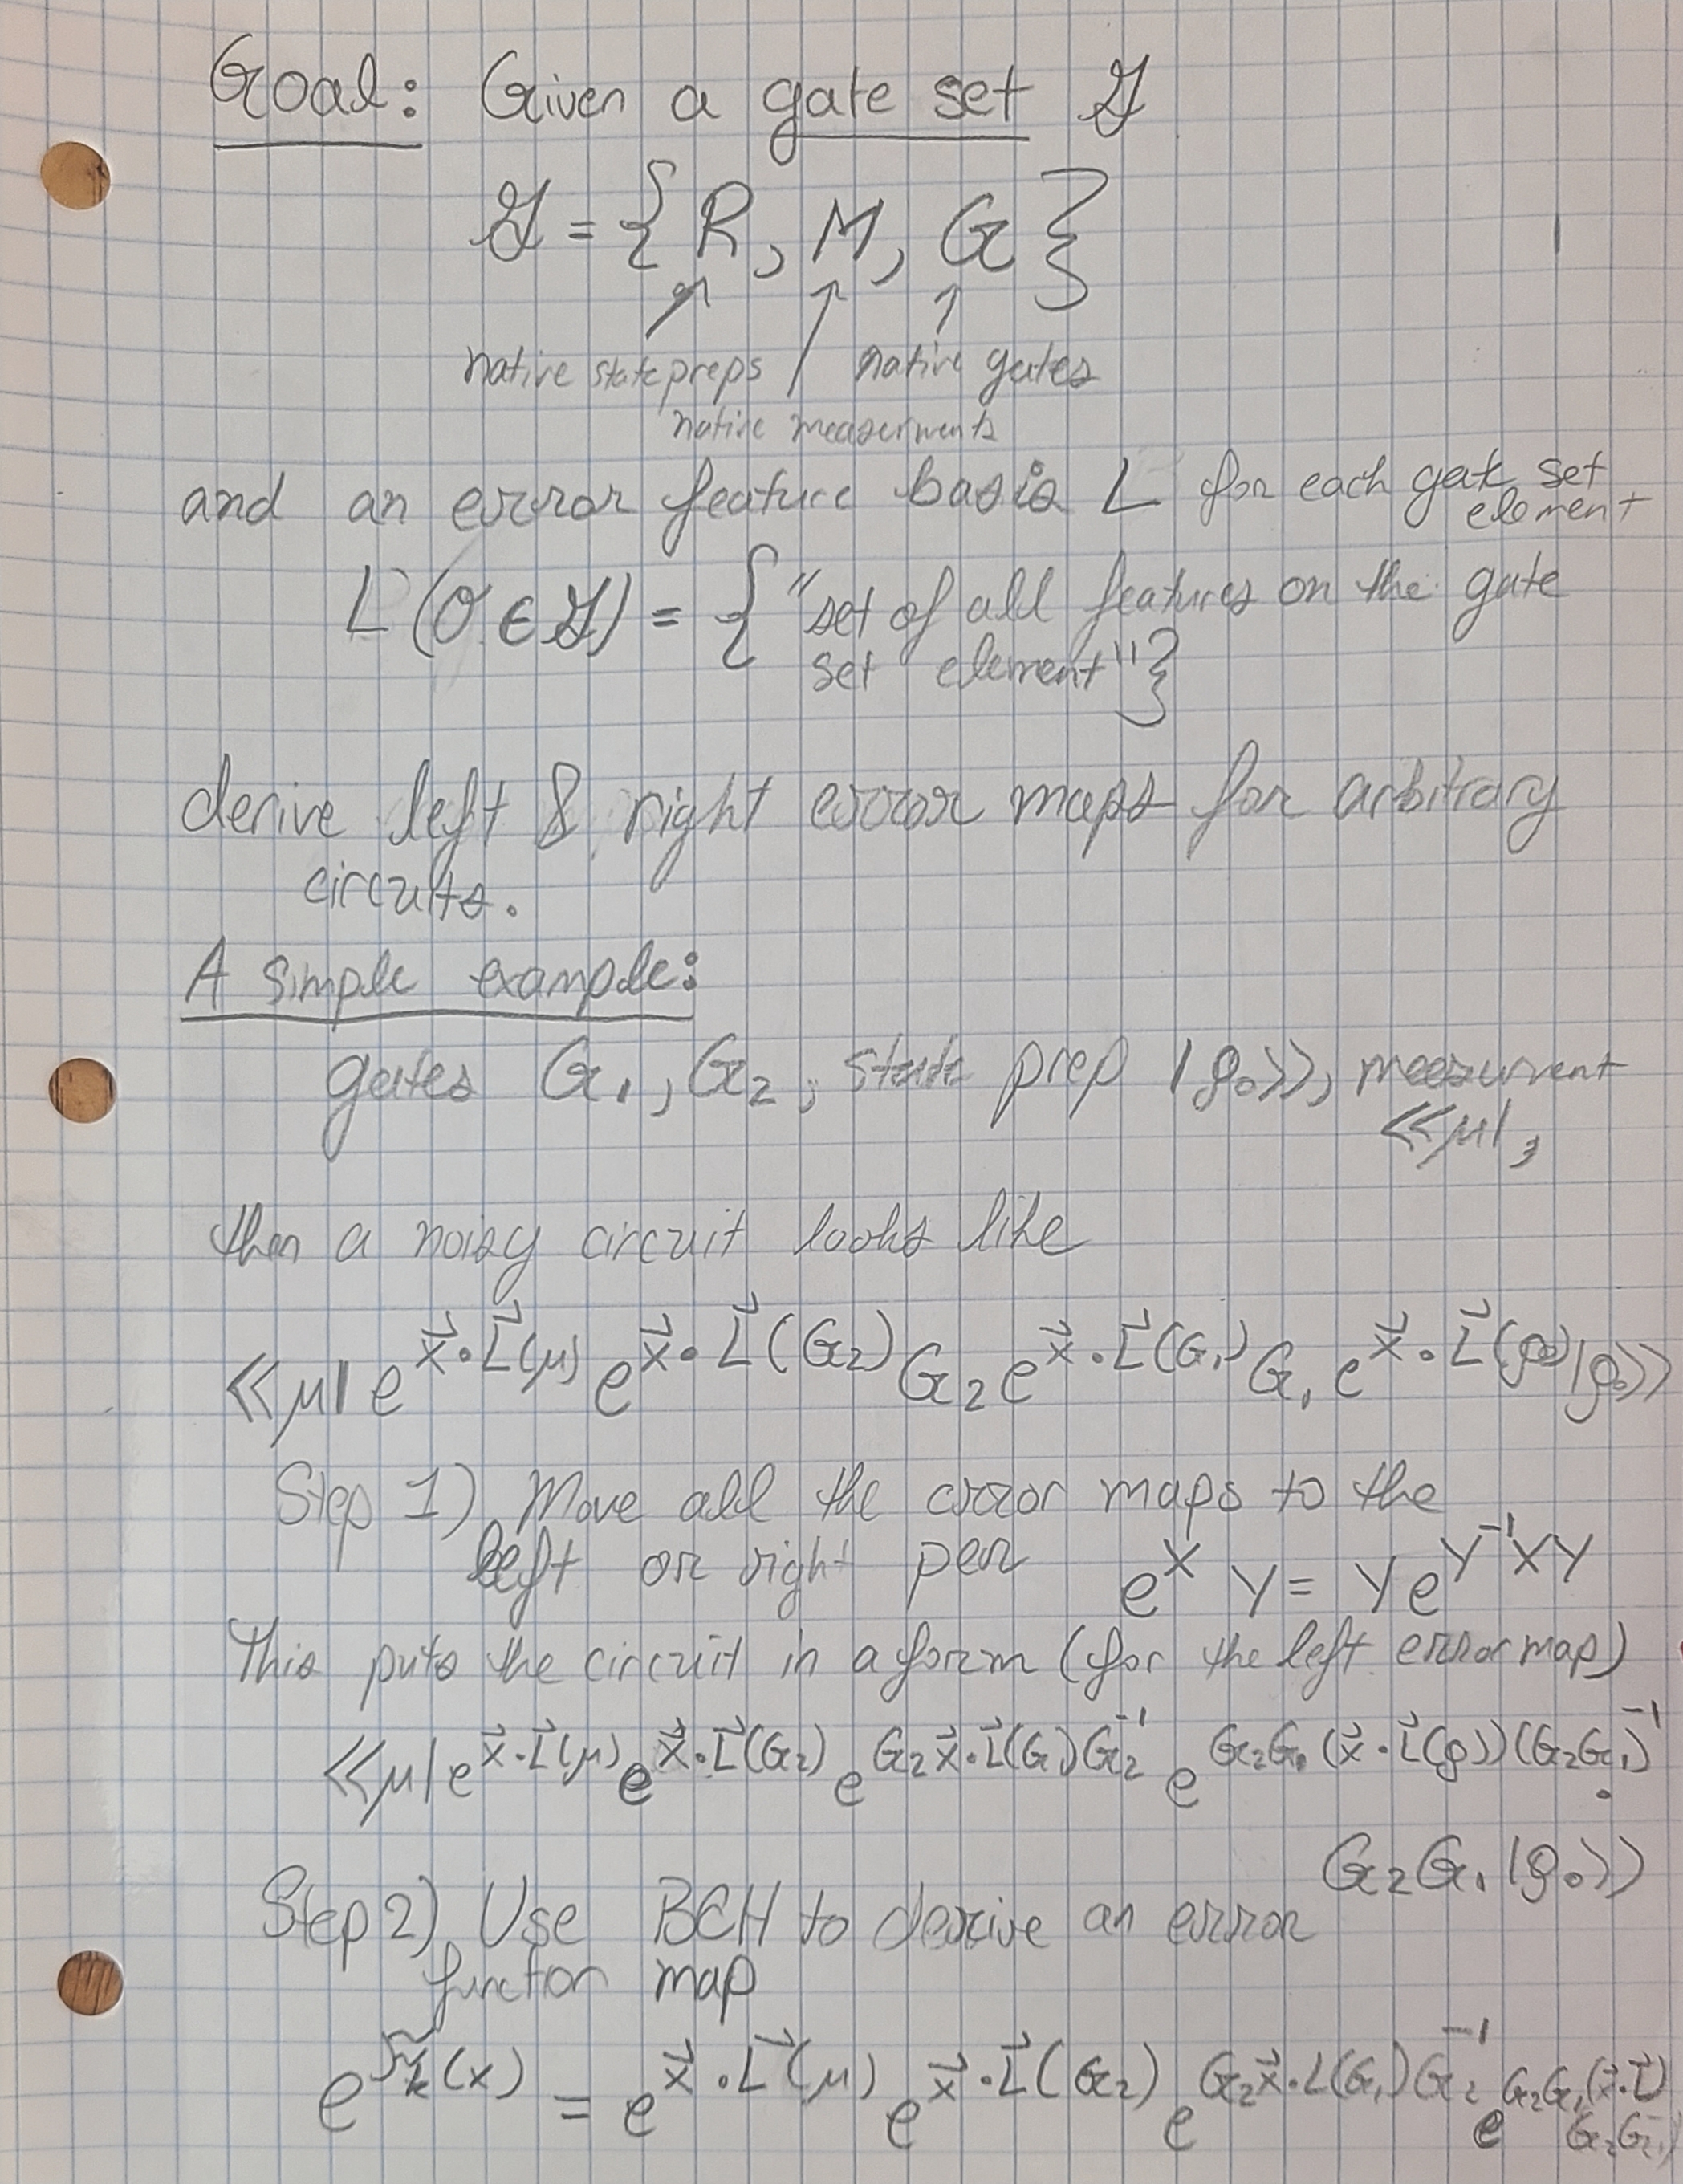 Goal: Given a gate set 𝒢
𝒢 = { R, M, G }
native state preps native gates
native measurments
and an error feature basis L for each gate set
element
L(σ ∈ 𝒢) = { "set of all features on the gate
set element"}
derive left & right error maps for arbitrary
circuits.
A simple example:
gates G₁, G₂, state prep |ρ₀⟩⟩, measurment
⟨⟨μ|,
then a noisy circuit looks like
⟨⟨μ| e^{x⃗·L⃗(μ)} e^{x⃗·L⃗(G₂)} G₂ e^{x⃗·L⃗(G₁)} G₁ e^{x⃗·L⃗(ρ₀)} |ρ₀⟩⟩
Step 1) Move all the error maps to the
left or right per e^X Y = Y e^{Y⁻¹XY}
This puts the circuit in a form (for the left error map)
⟨⟨μ| e^{x⃗·L⃗(μ)} e^{x⃗·L⃗(G₂)} e^{G₂ x⃗·L⃗(G₁) G₂⁻¹} e^{G₂G₁ (x⃗·L⃗(ρ)) (G₂G₁)⁻¹} ·
G₂G₁ |ρ₀⟩⟩
Step 2) Use BCH to derive an error
function map
(x) = e^{x⃗·L⃗(μ)} e^{x⃗·L⃗(G₂)} e^{G₂ x⃗·L(G₁) G₂⁻¹} e^{G₂G₁(x⃗·L⃗)